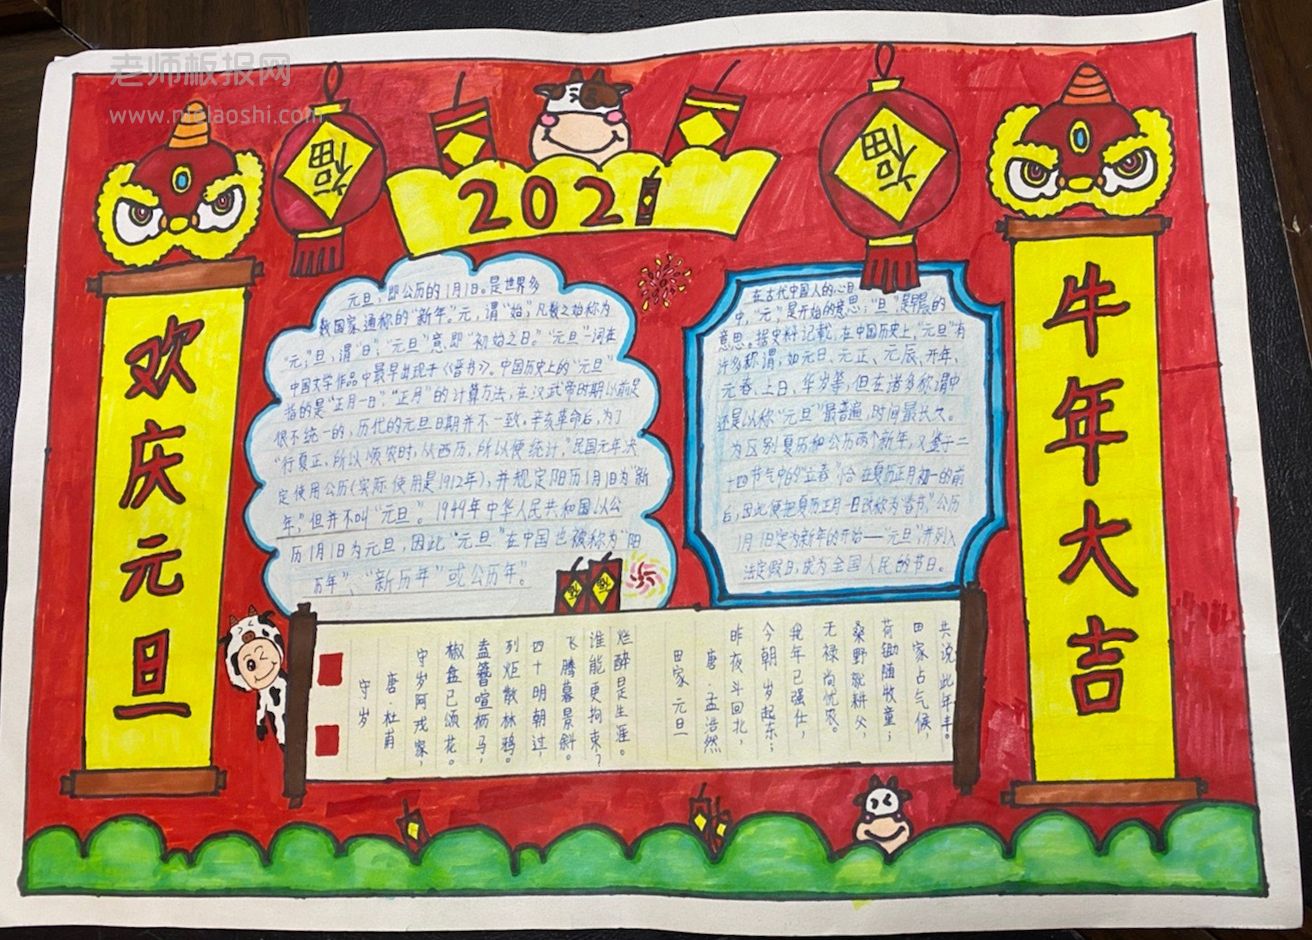 老师板报网
www.mclaoshi.com
福
福
2021
欢庆元旦
牛年大吉
元旦，即公历的1月1日。是世界多
数国家通称的“新年”。元，谓“始”，凡数之始称为
“元”；旦，谓“日”；“元旦”意即“初始之日”。“元旦”一词在
中国文学作品中最早出现于《晋书》。中国历史上的“元旦”
指的是“正月一日”，“正月”的计算方法，在汉武帝时期以前是
很不统一的，历代的元旦日期并不一致。辛亥革命后，为了
“行夏正，所以顺农时，从西历，所以便统计”，民国元年决
定使用公历（实际使用是1912年），并规定阳历1月1日为“新
年”，但并不叫“元旦”。1949年中华人民共和国以公
历1月1日为元旦，因此“元旦”在中国也被称为“阳
历年”、“新历年”或“公历年”。
在古代中国人的心目
中，“元”是开始的意思；“旦”是早晨的
意思。据史料记载，在中国历史上，“元旦”有
许多称谓，如元日、元正、元辰、开年、
元春、上日、华岁等，但在诸多称谓中
还是以称“元旦”最普遍，时间最长久。
为区别夏历和公历两个新年，又鉴于二
十四节气中的“立春”恰在夏历正月初一的前
后，因此便把夏历正月一日改称为“春节”，公历
1月1日定为新年的开始——“元旦”，并列入
法定假日，成为全国人民的节日。
田家元旦
唐·孟浩然
昨夜斗回北，
今朝岁起东；
我年已强仕，
无禄尚忧农。
桑野就耕父，
荷锄随牧童；
田家占气候，
共说此年丰。
守岁
唐·杜甫
守岁阿戎家，
椒盘已颂花。
盍簪喧枥马，
列炬散林鸦。
四十明朝过，
飞腾暮景斜。
谁能更拘束？
烂醉是生涯。